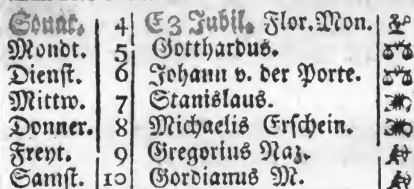 Sonnt. 4 E 3 Jubil. Flor. Mon.
Mondt. 5 Gotthardus.
Dienst. 6 Johann v. der Porte.
Mittw. 7 Stanislaus.
Donner. 8 Michaelis Erschein.
Freyt. 9 Gregorius Naz.
Samst. 10 Gordianus M.